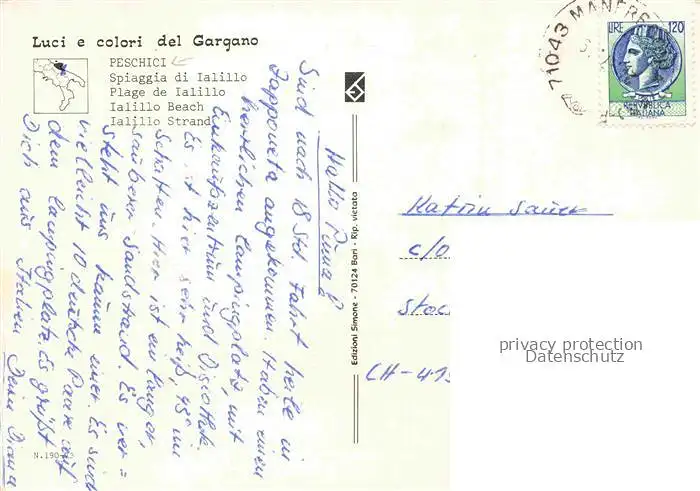 Luci e colori del Gargano
PESCHICI
Spiaggia di Ialillo
Plage de Ialillo
Ialillo Beach
Ialillo Strand
Hallo Puma!
Sind nach 18 Std. Fahrt heile in
Zapponeta angekommen. Haben einen
herrlichen Campingplatz, mit
Einkaufszentrum und Disothek.
Es ist hier sehr heiß, 45° im
Schatten. Hier ist ein langer,
sauberer Sandstrand. Es ver=
steht uns kaum einer. Es sind
vielleicht 10 deutsche Paare auf
dem Campingplatz. Es grüßt
Dich aus Italien Deine Diana
N.190-
Edizioni Simone - 70124 Bari - Rip. vietata
71043 MANFRE
LIRE 120
REPVBBLICA
ITALIANA
Katrin Sauer
c/o
Stoc
CH-41
privacy protection
Datenschutz